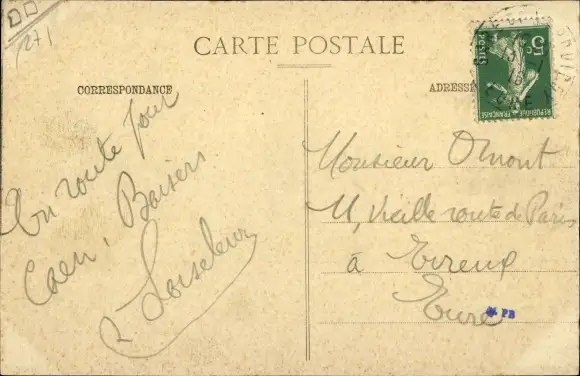 CARTE POSTALE
CORRESPONDANCE
ADRESSE
En route pour
Caen, Baisers
Loiseleur
Monsieur Omont
11, Vieille route de Paris
à Evreux
Eure
PB
5c
POSTES
REPUBLIQUE FRANÇAISE